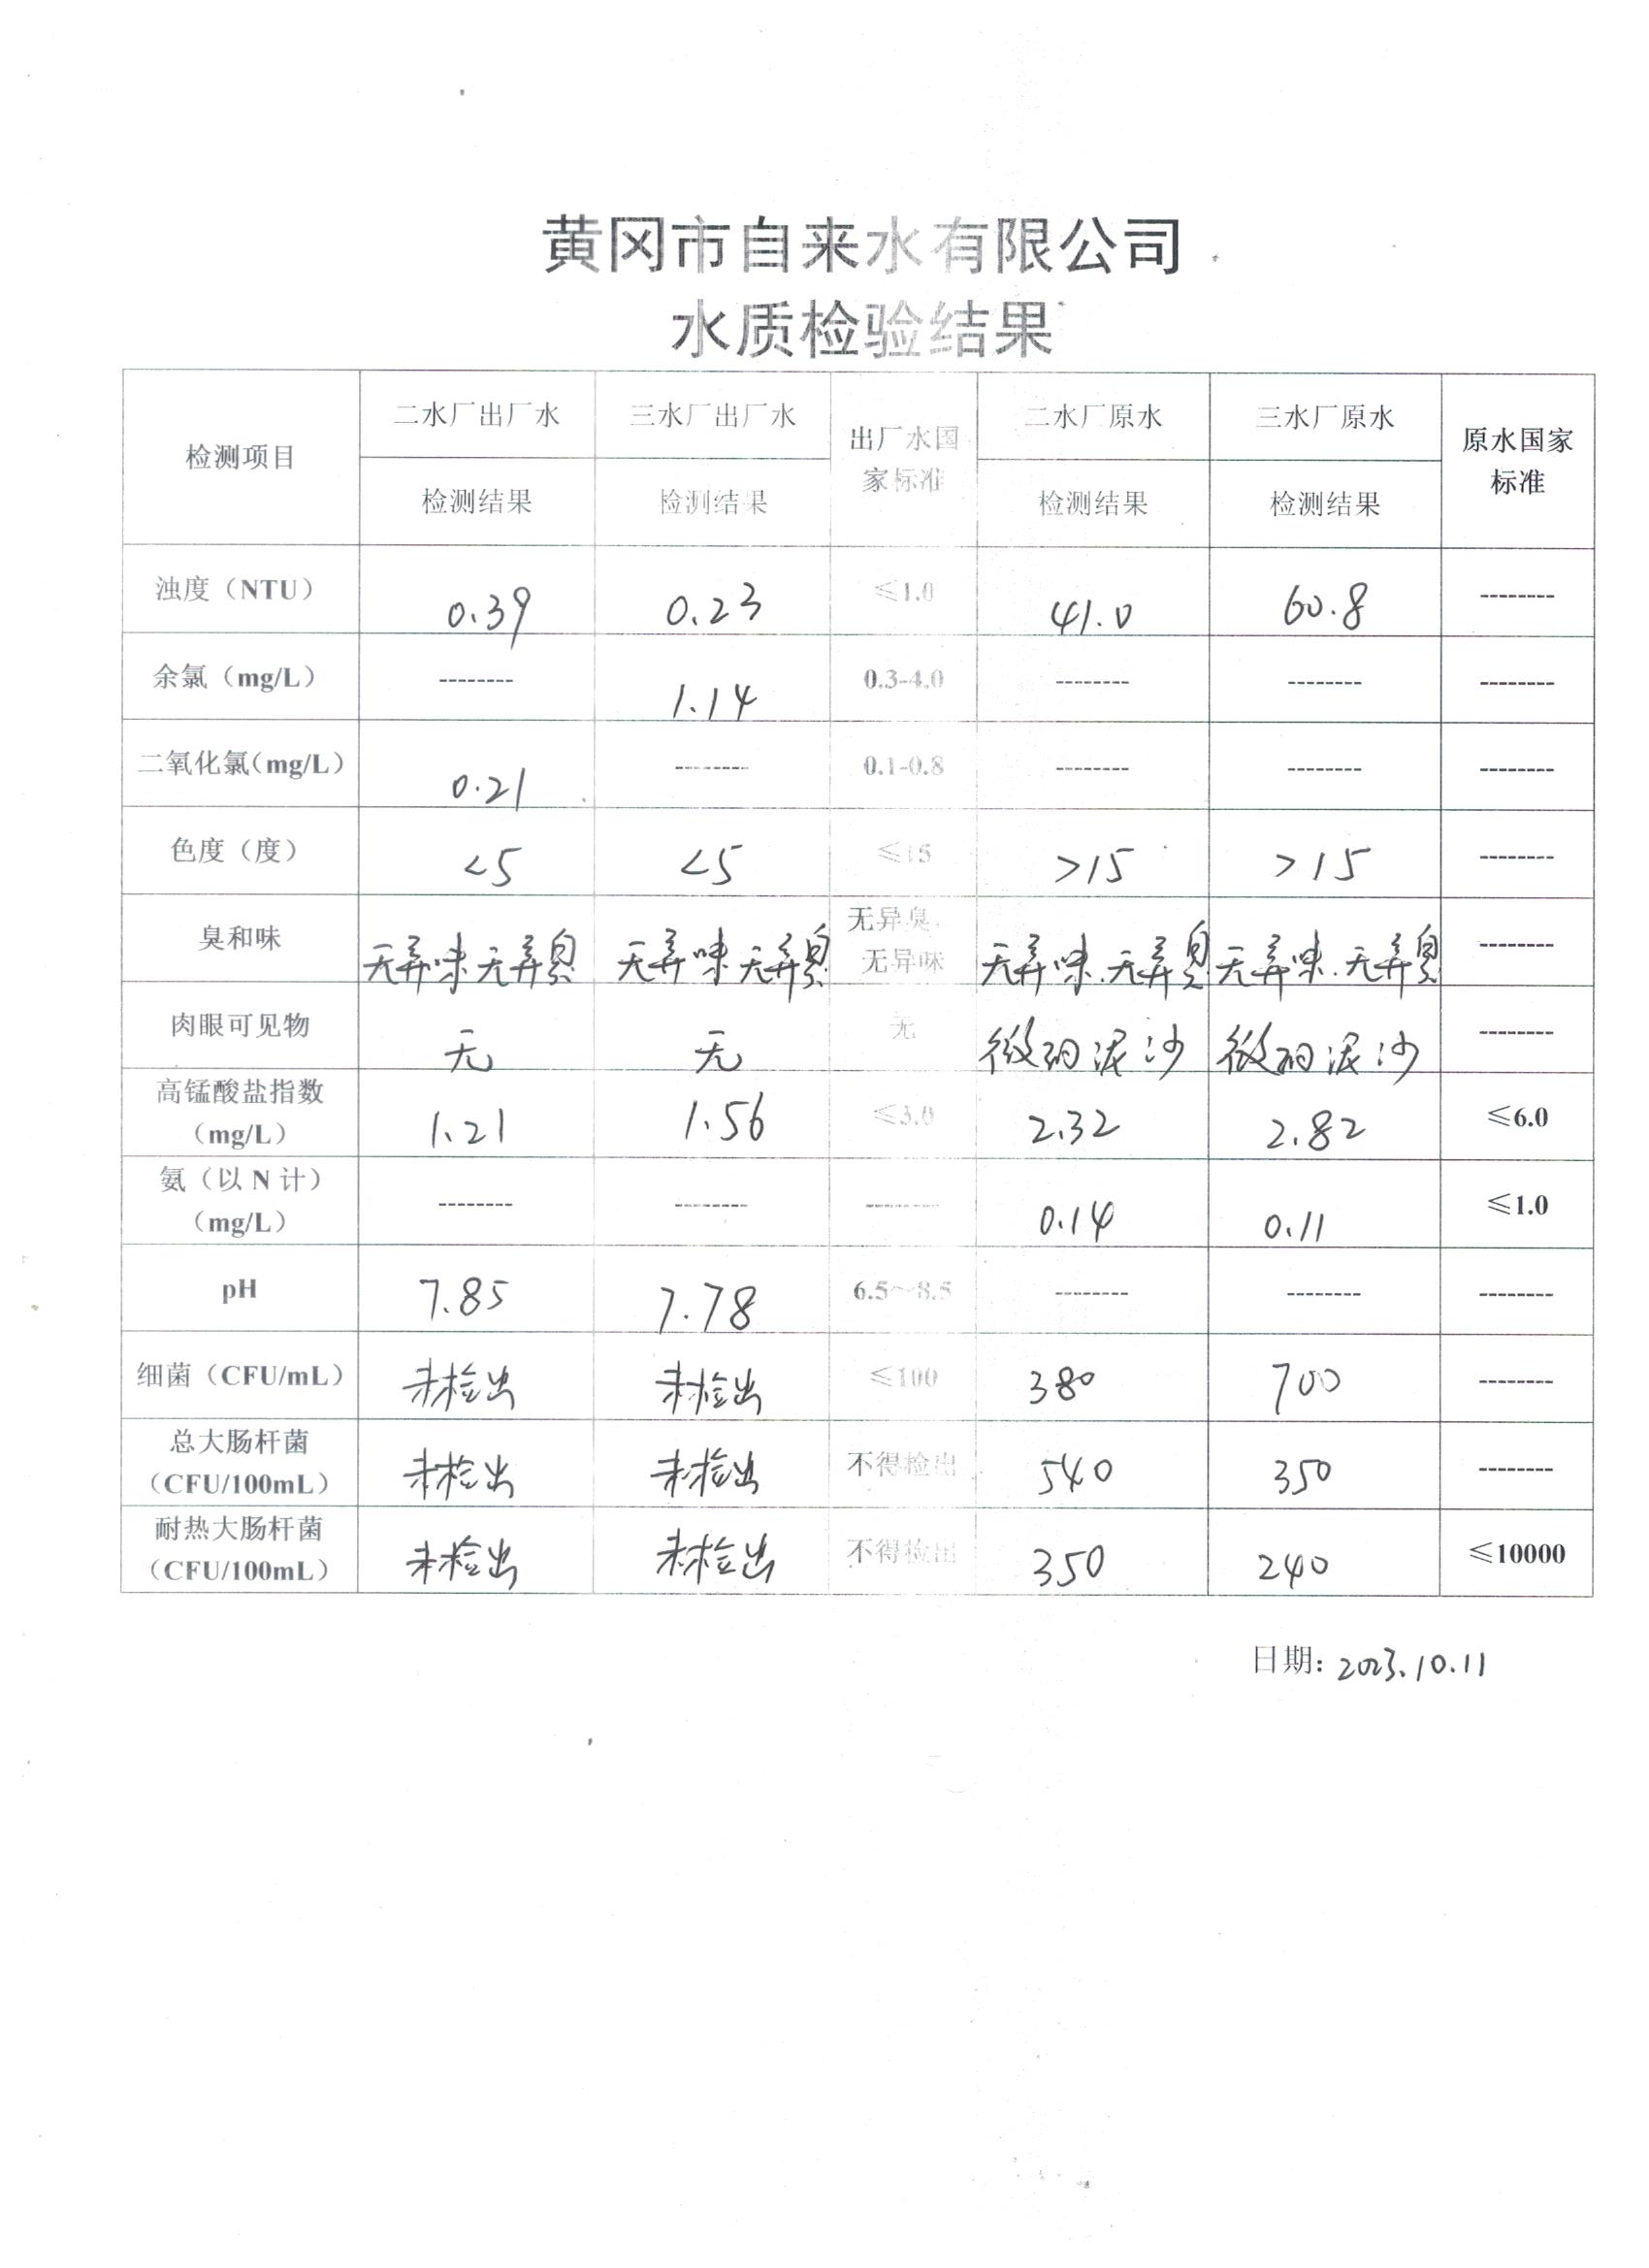 黄冈市自来水有限公司
水质检验结果
检测项目 二水厂出厂水 三水厂出厂水 出厂水国家标准 二水厂原水 三水厂原水 原水国家标准
检测结果 检测结果 检测结果 检测结果
浊度（NTU） 0.39 0.23 ≤1.0 41.0 60.8 --------
余氯（mg/L） -------- 1.14 0.3-4.0 -------- -------- --------
二氧化氯(mg/L) 0.21 -------- 0.1-0.8 -------- -------- --------
色度（度） <5 <5 ≤15 >15 >15 --------
臭和味 无异味无异臭 无异味无异臭 无异臭、无异味 无异味.无异臭 无异味.无异臭 --------
肉眼可见物 无 无 无 微细泥沙 微细泥沙 --------
高锰酸盐指数（mg/L） 1.21 1.56 ≤3.0 2.32 2.82 ≤6.0
氨（以N计）（mg/L） -------- -------- -------- 0.14 0.11 ≤1.0
pH 7.85 7.78 6.5~8.5 -------- -------- --------
细菌（CFU/mL） 未检出 未检出 ≤100 380 700 --------
总大肠杆菌（CFU/100mL） 未检出 未检出 不得检出 540 350 --------
耐热大肠杆菌（CFU/100mL） 未检出 未检出 不得检出 350 240 ≤10000
日期: 2023.10.11